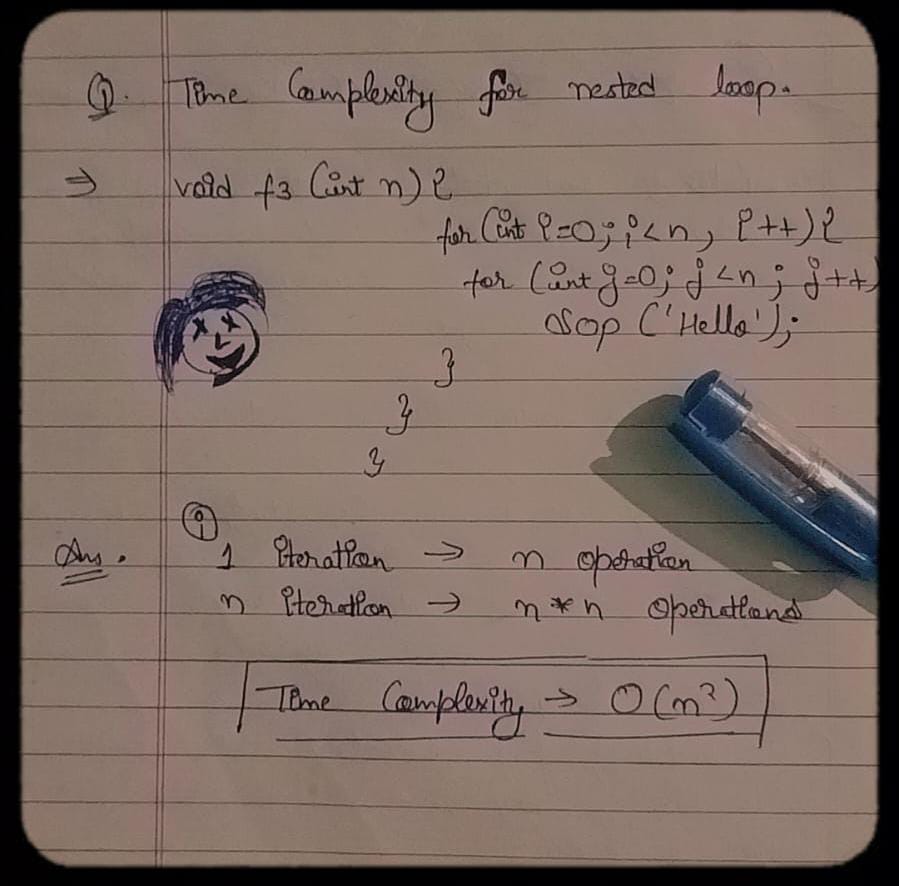 Q. Time Complexity for nested loop.
⇒ void f3 (int n) {
for (int i=0; i<n, i++) {
for (int j=0; j<n; j++)
sop ('Hello');
}
}
}
Ans. (i)
1 iteration → n operation
n iteration → n*n operations
Time Complexity → O(n²)